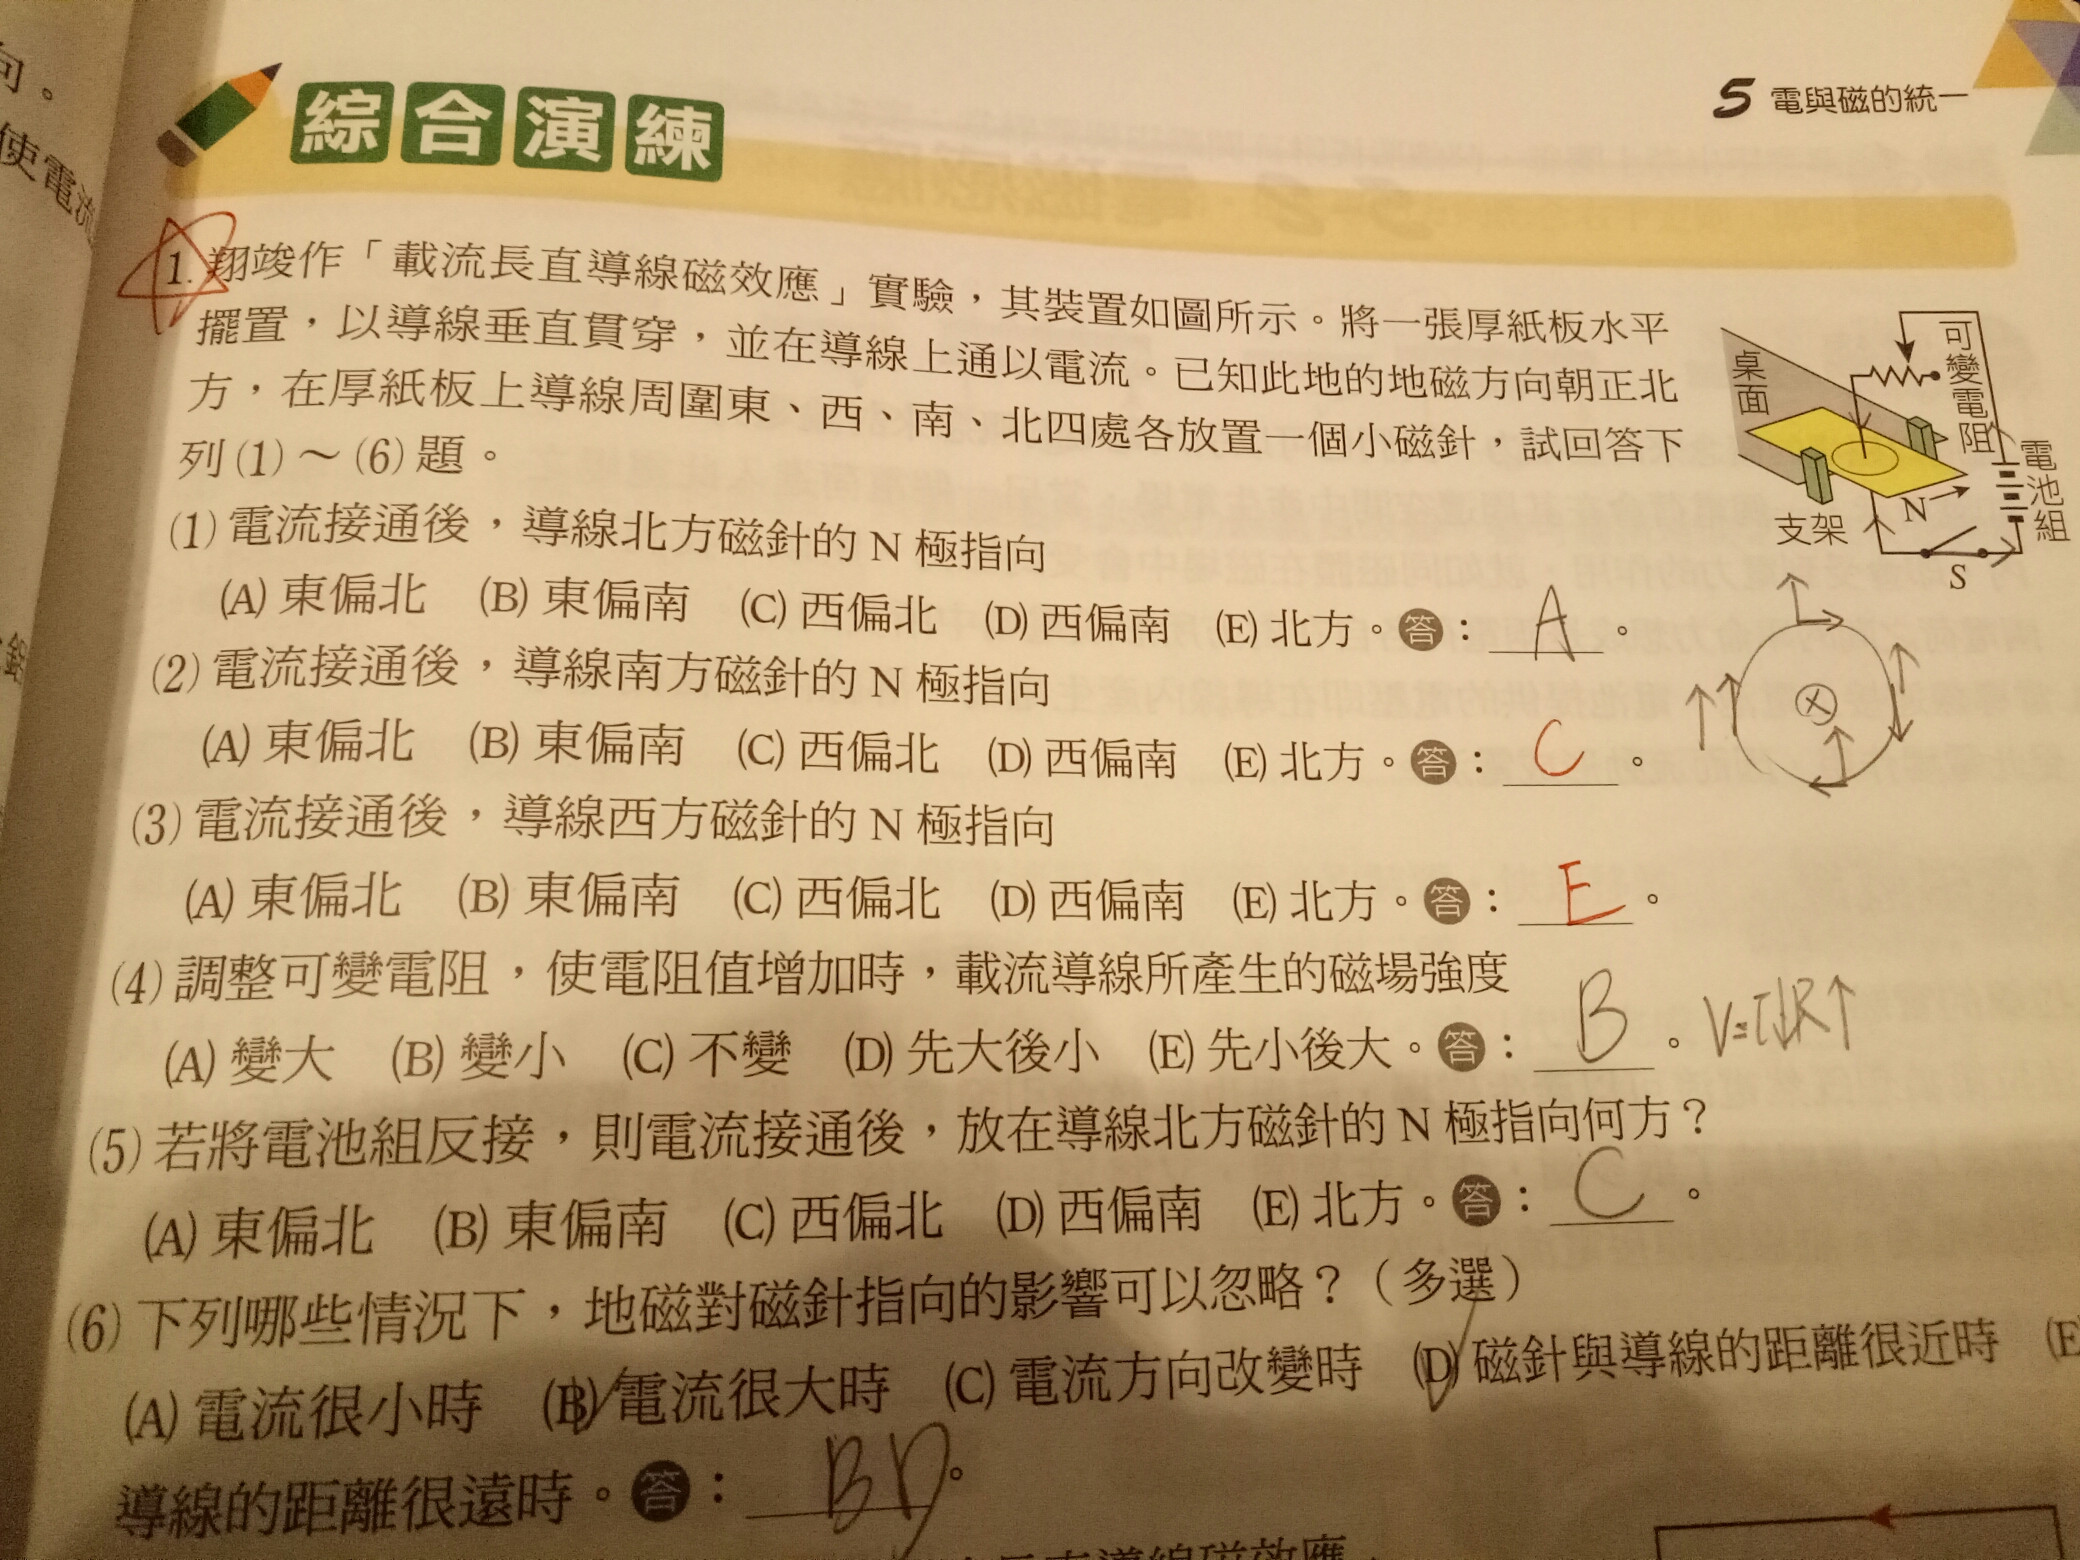 向。
使電流
5 電與磁的統一
綜合演練
1. 翔竣作「載流長直導線磁效應」實驗，其裝置如圖所示。將一張厚紙板水平
擺置，以導線垂直貫穿，並在導線上通以電流。已知此地的地磁方向朝正北
方，在厚紙板上導線周圍東、西、南、北四處各放置一個小磁針，試回答下
列(1)～(6)題。
桌面
可變電阻
電池組
支架
N
S
(1) 電流接通後，導線北方磁針的 N 極指向
(A) 東偏北 (B) 東偏南 (C) 西偏北 (D) 西偏南 (E) 北方。答：A。
(2) 電流接通後，導線南方磁針的 N 極指向
(A) 東偏北 (B) 東偏南 (C) 西偏北 (D) 西偏南 (E) 北方。答：C。
(3) 電流接通後，導線西方磁針的 N 極指向
(A) 東偏北 (B) 東偏南 (C) 西偏北 (D) 西偏南 (E) 北方。答：E。
(4) 調整可變電阻，使電阻值增加時，載流導線所產生的磁場強度
(A) 變大 (B) 變小 (C) 不變 (D) 先大後小 (E) 先小後大。答：B。V=I↓R↑
(5) 若將電池組反接，則電流接通後，放在導線北方磁針的 N 極指向何方？
(A) 東偏北 (B) 東偏南 (C) 西偏北 (D) 西偏南 (E) 北方。答：C。
(6) 下列哪些情況下，地磁對磁針指向的影響可以忽略？（多選）
(A) 電流很小時 (B) 電流很大時 (C) 電流方向改變時 (D) 磁針與導線的距離很近時 (E
導線的距離很遠時。答：BD。
長直導線磁效應